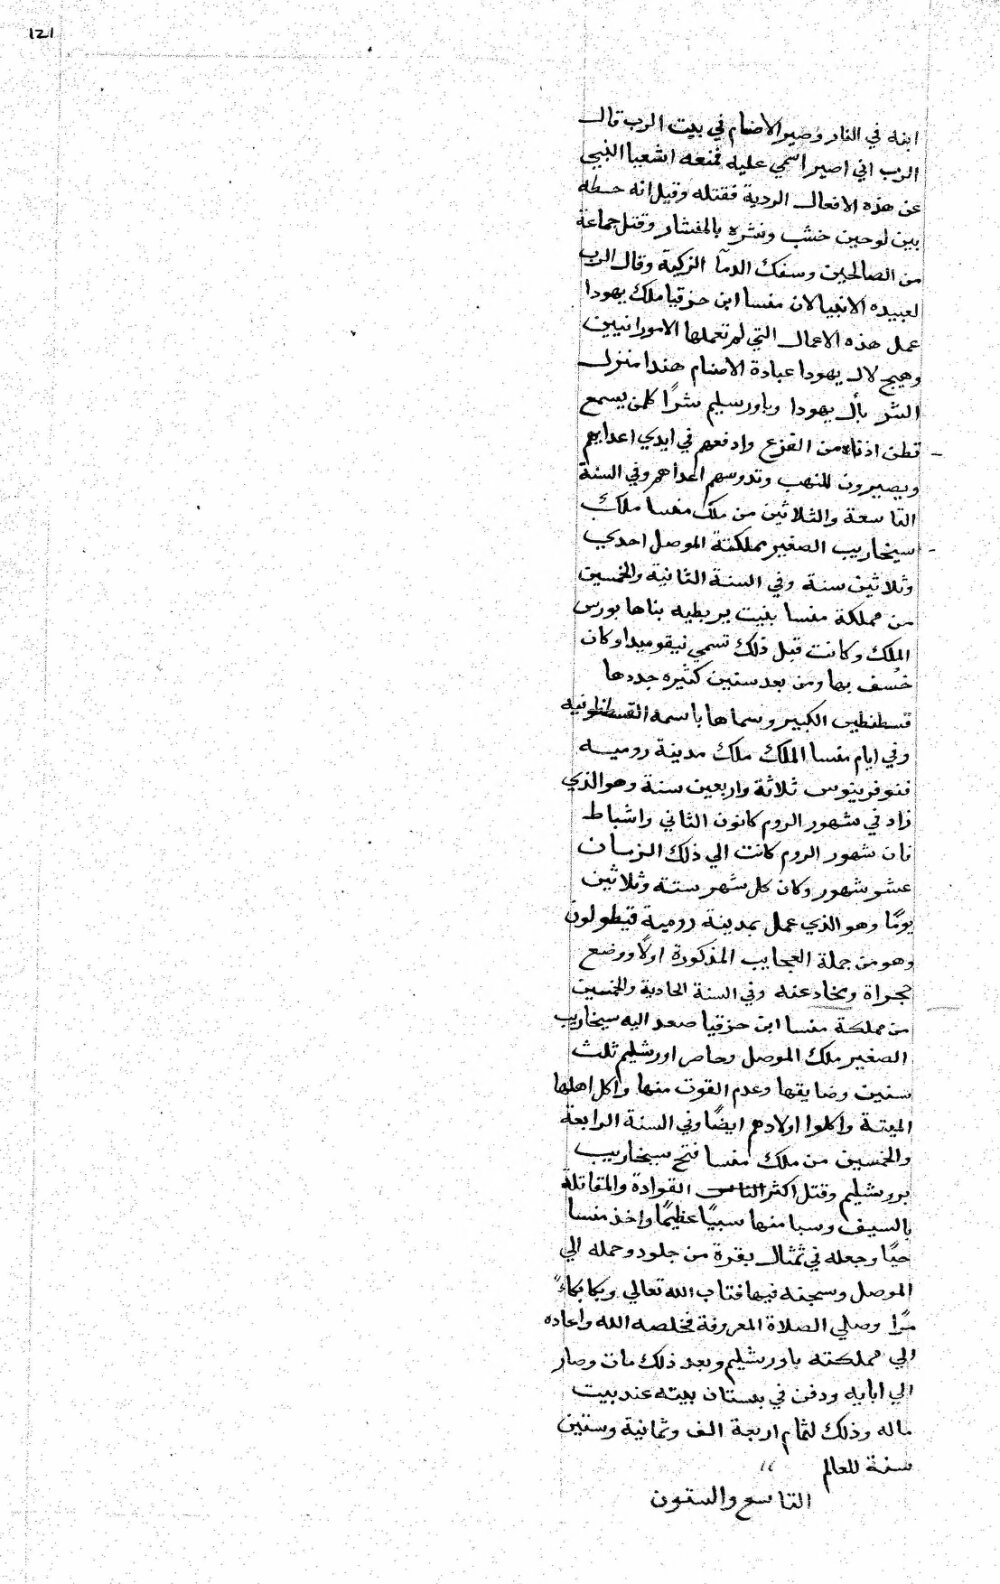 121
ابنه في النار وصير الاصنام في بيت الرب قال
الرب اني اصير اسمي عليه فمنعه اشعيا النبي
عن هذه الافعال الردية فقتله وقيل انه حطه
بين لوحين خشب ونشره بالمنشار وقتل جماعة
من الصالحين وسفك الدمآ الزكية وقال الرب
لعبيده الانبيا لان منسا ابن حزقيا ملك يهودا
عمل هذه الاعمال التي لم تعملها الامورانيين
وهيج لال يهودا عبادة الاصنام هندا منزل
الشر بأل يهودا وباورسليم شرًا كلمن يسمع
تطن اذناه من الفزع وادفعهم في ايدي اعدايهم
ويصيرون للنهب وتدوسهم اعداهم وفي السنة
التاسعة والثلاثين من ملك منسا ملك
سيخاريب الصغير بملكته الموصل احدي
وثلاثين سنة وفي السنة الثانية والخمسين
من مملكة منسا بنيت بربطيه بناها بورس
الملك وكانت قبل ذلك تسمي نيقوميدا وكان
خُسف بها ومن بعد سنين كثيره جددها
قسطنطين الكبير وسماها باسمه القسطنطونيه
وفي ايام منسا الملك ملك مدينة روميه
فنوفرينوس ثلاثة واربعين سنة وهو الذي
زاد في شهور الروم كانون الثاني واشباط
فان شهور الروم كانت الي ذلك الزمان
عشر شهور وكان كل شهر ستة وثلاثين
يومًا وهو الذي عمل بمدينة رومية قيطولون
وهو من جملة العجايب المذكورة اولًا ووضع
مجراة ومخادعنه وفي السنة الحادية والخمسين
من مملكة منسا ابن حزقيا صعد اليه سيخاريب
الصغير ملك الموصل وحاصر اورشليم ثلث
سنين وضايقها وعدم القوت منها واكل اهلها
الميتة واكلوا اولادهم ايضًا وفي السنة الرابعة
والخمسين من ملك منسا فتح سيخاريب
يروشليم وقتل اكثر الناس القوادة والمقاتلة
بالسيف وسبا منها سبيًا عظيمًا واخذ منسا
حيًا وجعله في تمثال بقرة من جلود وحمله الي
الموصل وسجنه فيها فتاب الله تعالي وبكا بكاءً
مرًا وصلي الصلاة المعروفة فخلصه الله واعاده
الي مملكته باورشليم وبعد ذلك مات وصار
الي ابايه ودفن في بستان بيته عند بيت
ماله وذلك لتمام اربعة الف وثمانية وستين
سنة للعالم
التاسع والستون